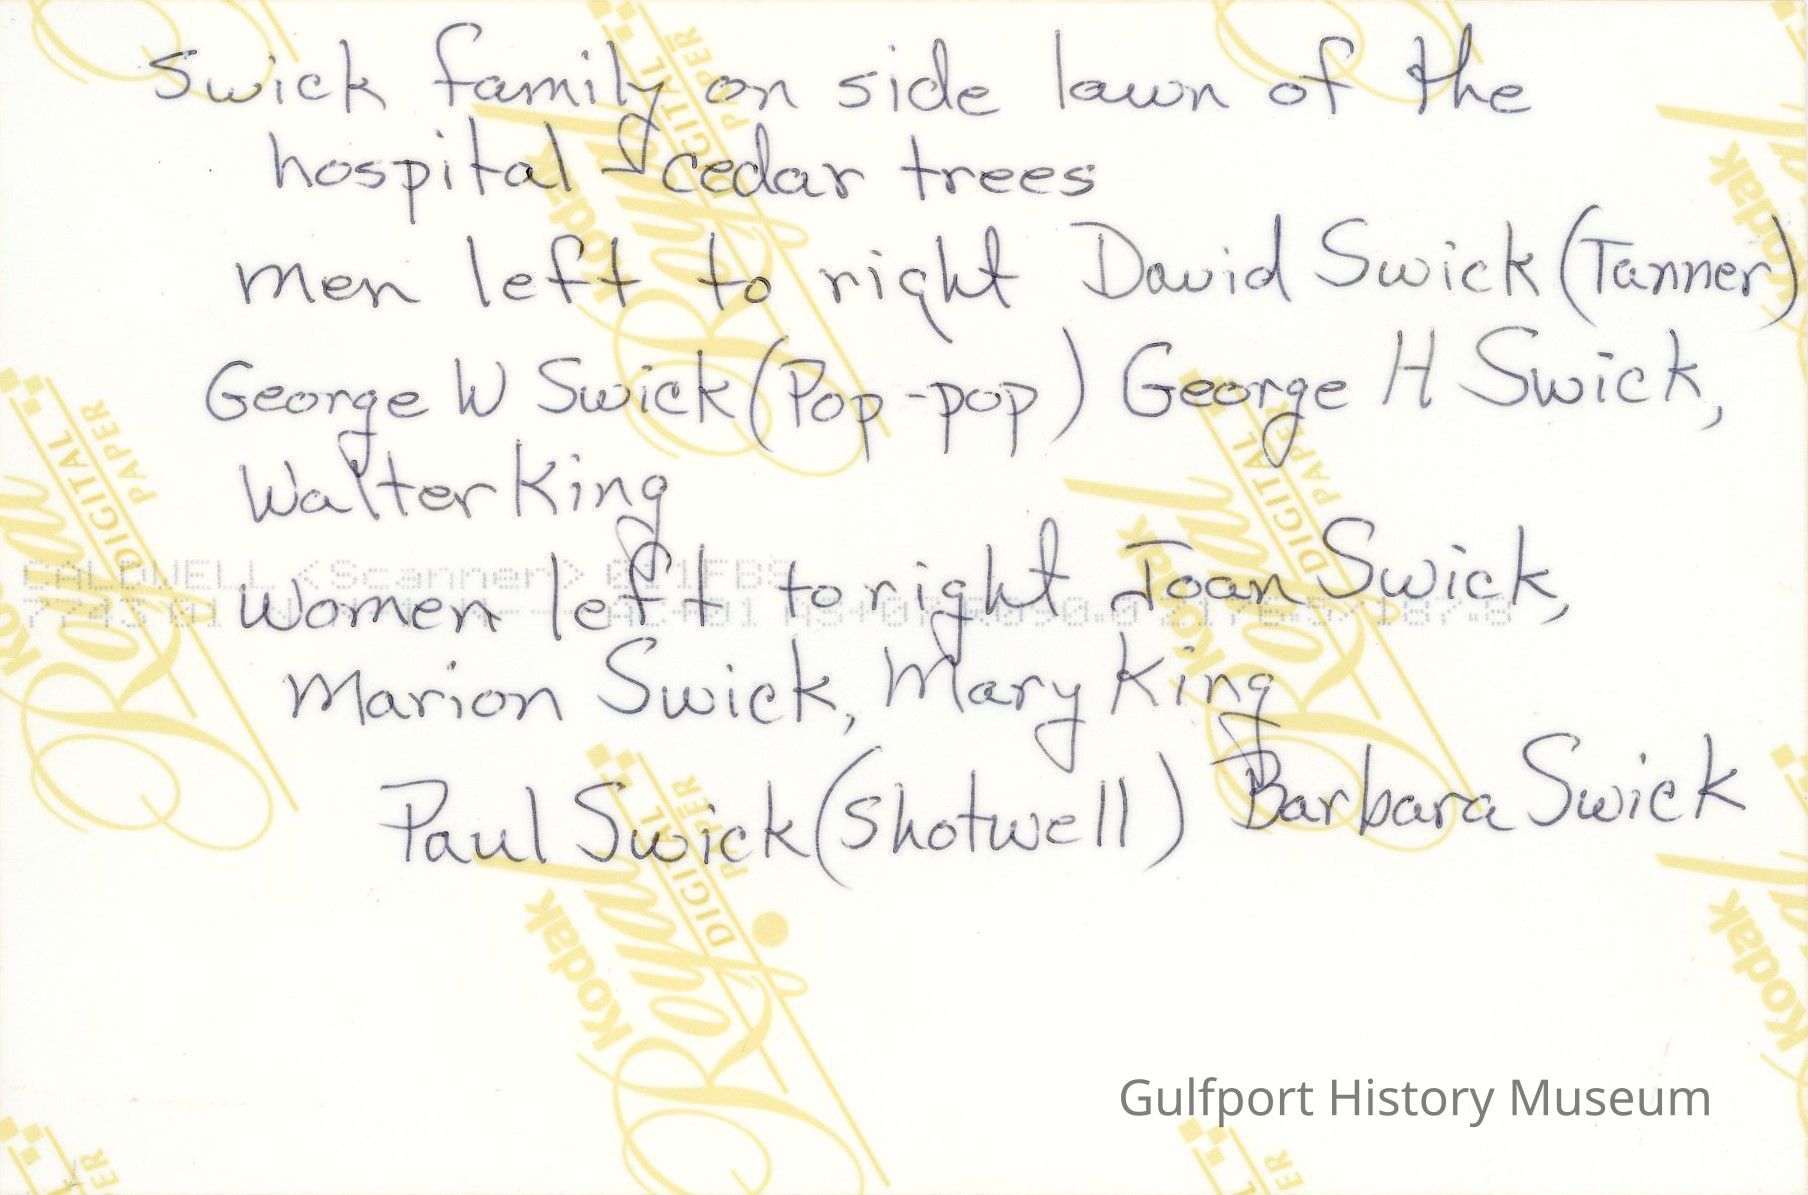 Swick family on side lawn of the
hospital & cedar trees
men left to right David Swick (Tanner)
George W Swick (Pop-pop) George H Swick,
Walter King
CALDWELL <Scanner>
women left to right Joan Swick,
Marion Swick, Mary King
Paul Swick (Shotwell) Barbara Swick
Kodak
Royal
DIGITAL
PAPER
Gulfport History Museum